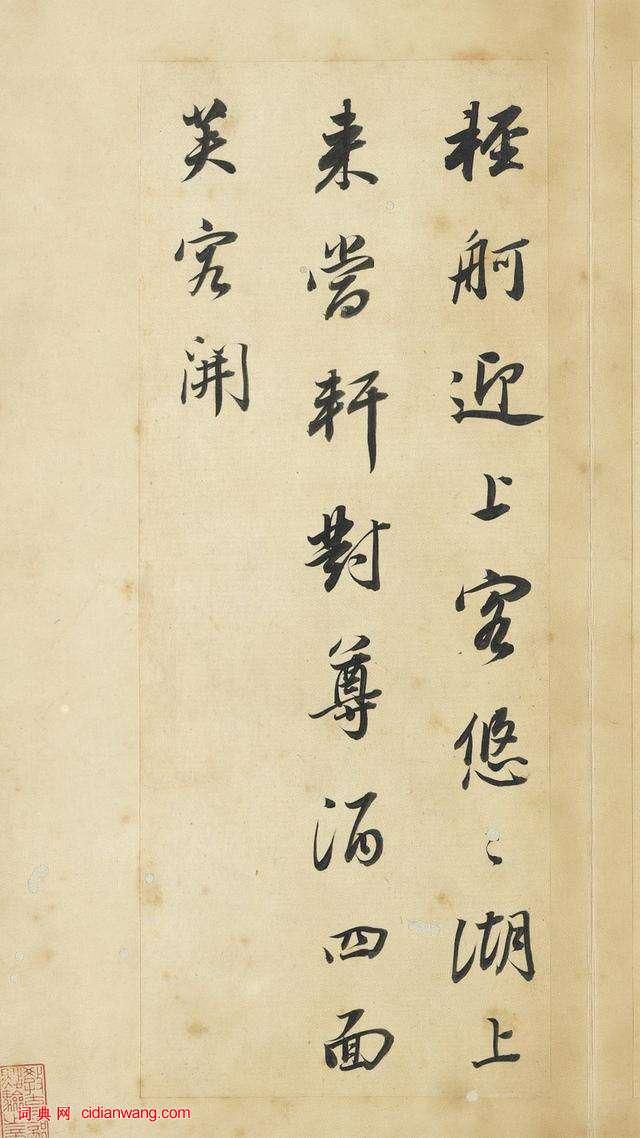 輕舸迎上客悠〻湖上
来當軒對尊酒四面
芙容開
词典网 cidianwang.com